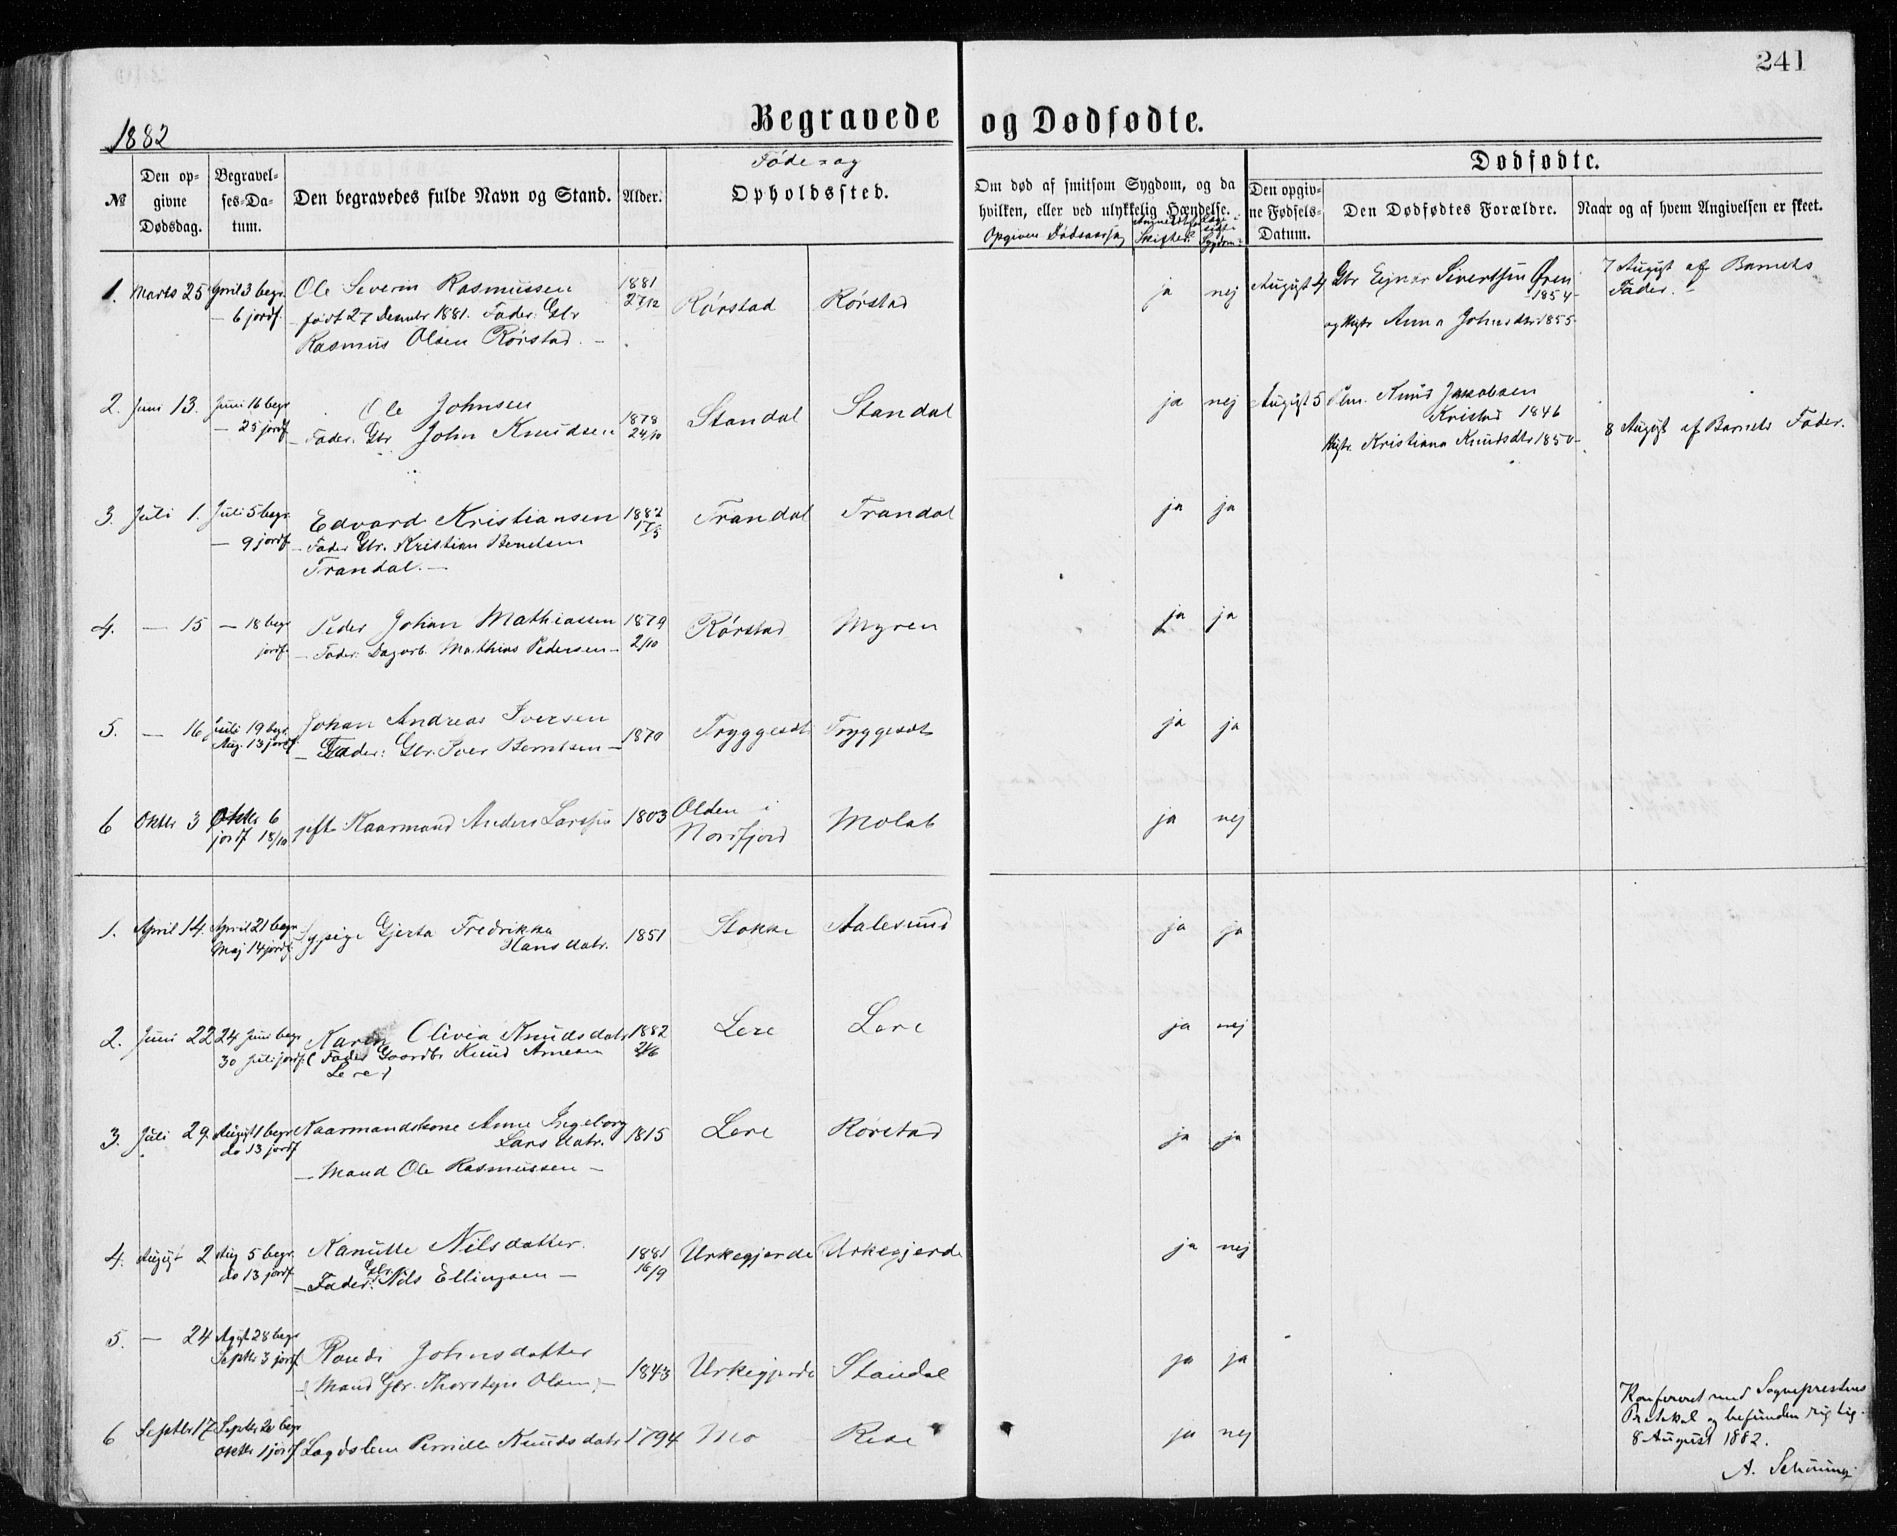 241
Begravede og Dødfødte.
1882
№
Den opgivne Dødsdag.
Begravelses-Datum.
Den begravedes fulde Navn og Stand.
Alder.
Føde- og
Opholdssted.
Om død af smitsom Sygdom, og da
hvilken, eller ved ulykkelig Hændelse.
Opgiven Dødsaarsag
Dødfødte.
Den opgivne Fødsels-Datum.
Den Dødfødtes Forældre.
Naar og af hvem Angivelsen er skeet.
1. Marts 25 April 3 begr. Ole Severin Rasmussen 1881 27/12 Rørstad Rørstad ja nej
— 6 jordf. født 27 Decembr 1881. Fader: Gbr
Rasmus Olsen Rørstad. —
August 4 Gbr Ejnar Sivertsen Øren 1854 7 August af Barnets
og Hustr Anna Johnsdtr 1855 Fader. —
2. Juni 13. Juni 16 begr Ole Johnsen 1878 24/10 Standal Standal ja nej
— 25 jordf. — Fader: Gbr John Knudsen
August 5 Plm. Knud Jakobsen
Kristad 1846
Hustr. Kristiana Knudsdtr 1850 — 8 August af Barnets Fader.
3. Juli 1. Juli 5 begr. Edvard Kristiansen 1882 17/5 Trandal Trandal ja ja
— 9 jordf. — Fader Gbr. Kristian Berntsen
Trandal. —
4. — 15 — 18 begr Peder Johan Mathiassen 1879 2/10 Rørstad Myren ja ja
jordf. — Fader: Dagarb. Mathias Pedersen —
5. — 16 Juli 19 begr. Johan Andreas Iversen 1870 Tryggesdt Tryggesdt ja ja
Aug. 13 jordf. — Fader: Gbr. Iver Berntsen —
6 Oktbr 3 Oktbr 6 gifte Kaarmand Anders Larssen 1803 Olden i Molab ja nej
jordf 18/10 Nordfjord
1. April 14. April 21 begr Sypige Gjerta Fredrikka 1851 Stokke Aalesund ja ja
Maj 14 jordf. Hansdatr.
2. Juni 22 24 Juni begr Karen Olivia Knudsdatr 1882 Lere Lere ja nej
30 Juli jordf. (Fader Gaardbr Knud Arnesen
Lere)
3. Juli 29. August 1 begr Kaarmandskone Anne Ingeborg 1815 Lere Rørstad ja ja
do 13 jordf Larsdatr.
— Mand Ole Rasmussen —
4. August 2 Aug 5 begr. Kanutte Nilsdatter. 1881 16/9 Urkegjerde Urkegjerde ja nej
do 13 jordf — Fader: Gbr. Nils Ellingsen —
5. — 24 Agst 28 begr Randi Johnsdatter 1843 Urkegjerde Standal ja ja
Septbr 3 jordf. — (Mand Gbr. Thorstein Olsen) —
6 Septbr 17 Septbr 20 begr Lægdslem Pernille Knudsdatr 1794 Mo Rese ja nej
Oktbr 1 jordf
Konfereret med Sognepræstens
Protokol og befunden rigtig.
8 August 1882.
A. Schöning